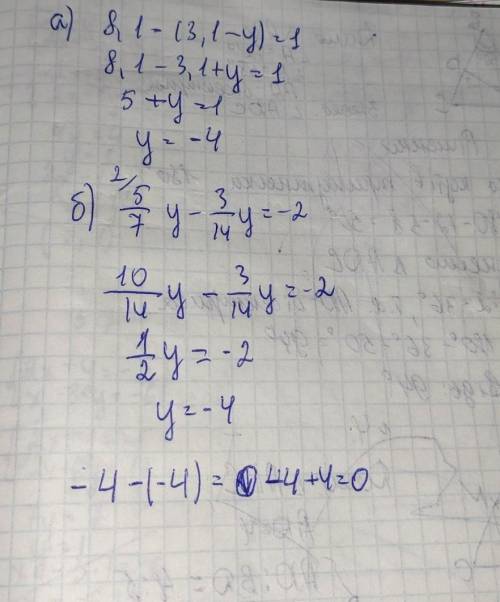 а) 8,1 - (3,1 - y) = 1
8,1 - 3,1 + y = 1
5 + y = 1
y = -4
б) 2/ 5/7 y - 3/14 y = -2
10/14 y - 3/14 y = -2
1/2 y = -2
y = -4
-4 - (-4) = -4 + 4 = 0